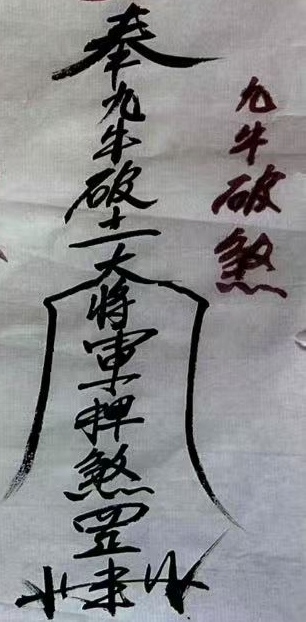 九牛破煞
奉九牛破土大將軍押煞罡